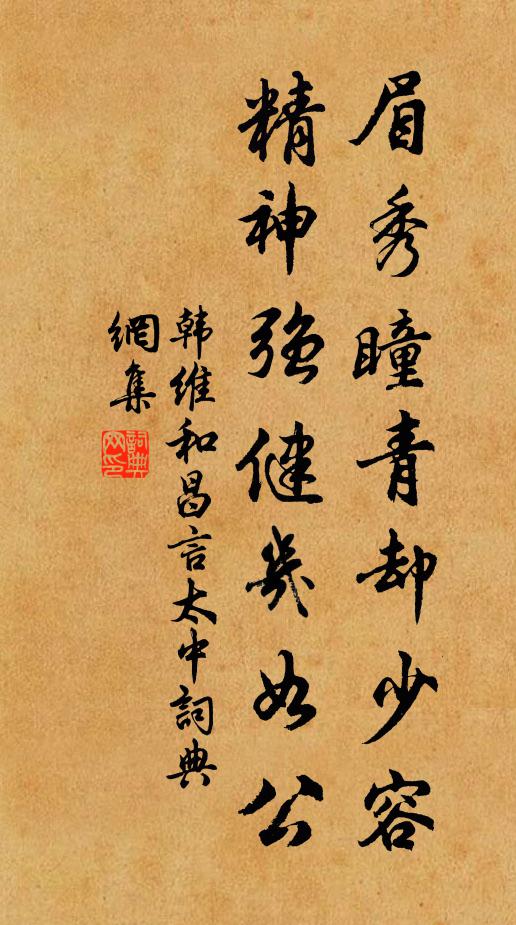 眉秀瞳青却少容
精神強健幾如公
韩維和昌言太中詞典
網集
詞典
网印